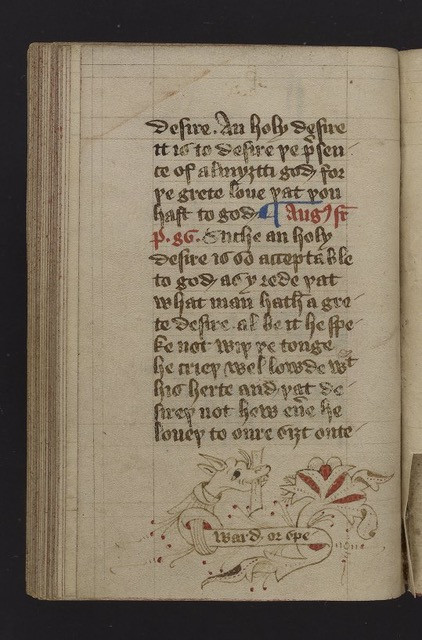 desire. An holy desire
it is to desire þe p̄sen
ce of almyȝtti god for
þe grete loue þat þou
hast to god ¶ Augꝰst
p. 86. Suche an holy
desire is so acceptable
to god as y rede þat
what man hath a gre-
te desire. al be it he spe-
ke not wiþ þe tonge
he crieþ wel lowde wᵗ
his herte and þat de-
sireþ not how eūe he
loueþ to oure siȝt oute-
ward. or spe